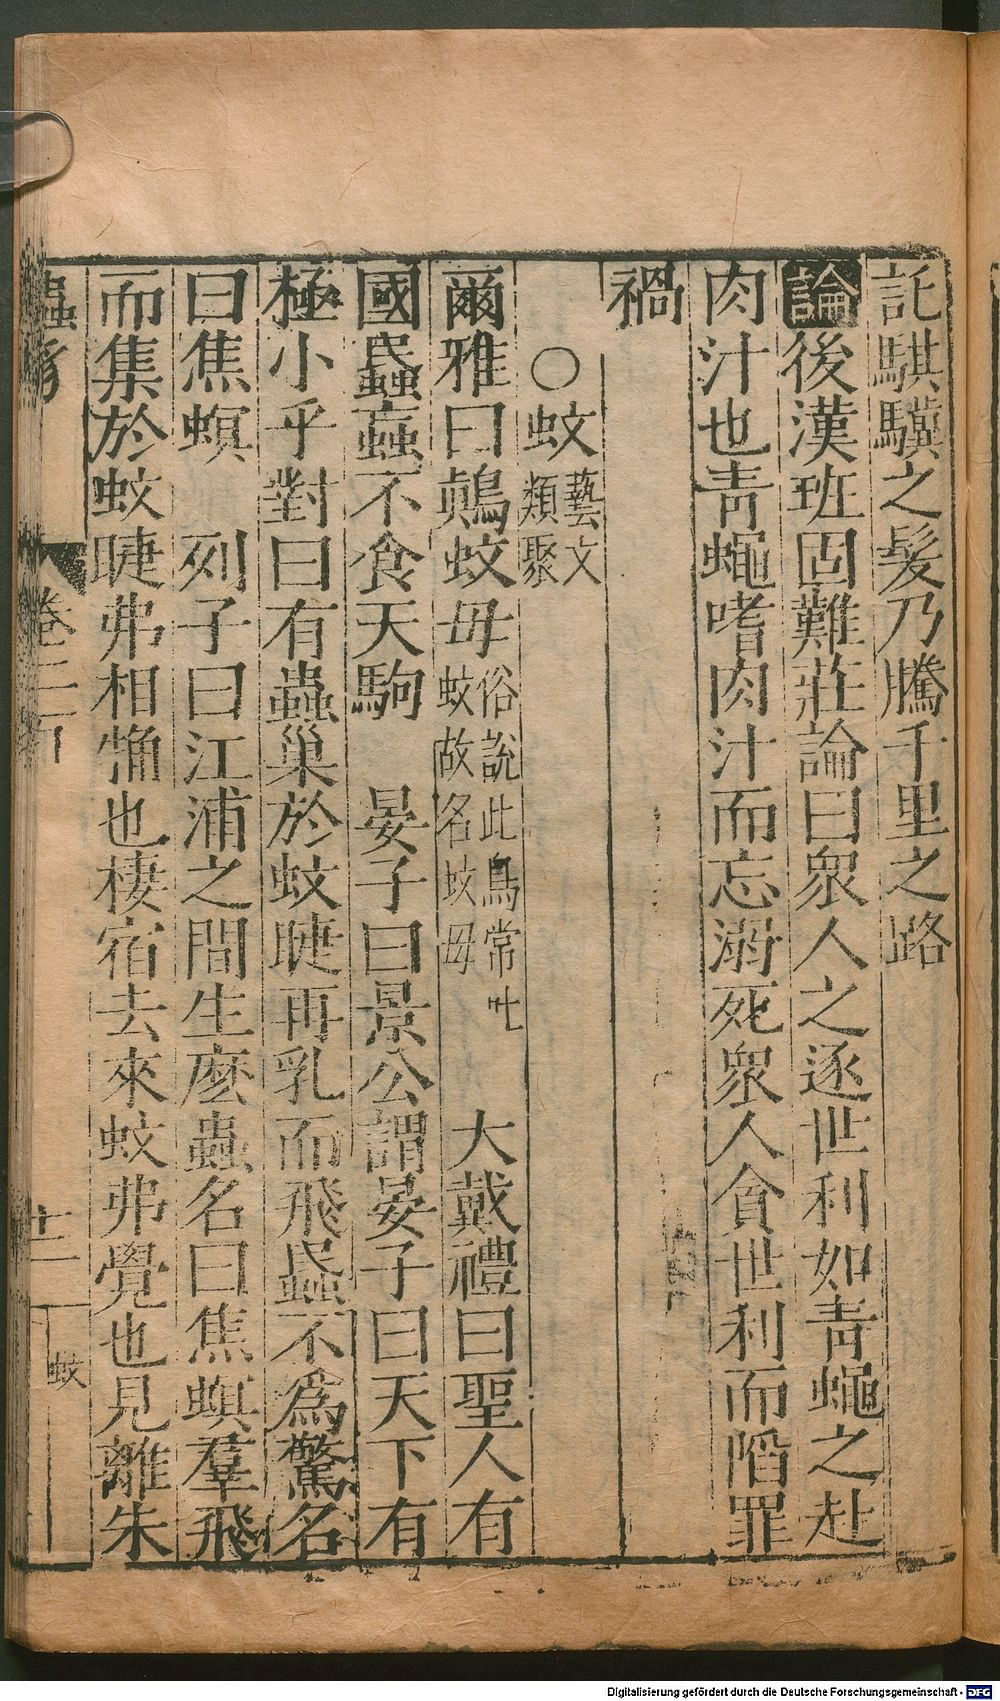 託騏驥之髮乃騰千里之路
論後漢班固難莊論曰衆人之逐世利如靑蠅之赴
肉汁也靑蠅嗜肉汁而忘溺死衆人貪世利而陷罪
禍
○蚊藝文類聚
爾雅曰鷏蚊母俗說此鳥常吐蚊故名蚊母 大戴禮曰聖人有
國蟁蝱不食天駒 晏子曰景公謂晏子曰天下有
極小乎對曰有蟲巢於蚊睫再乳而飛蟁不爲驚名
曰焦螟 列子曰江浦之間生麽蟲名曰焦螟羣飛
而集於蚊睫弗相觸也棲宿去來蚊弗覺也見離朱
蟲豸 卷二百 十二 蚊
Digitalisierung gefördert durch die Deutsche Forschungsgemeinschaft - DFG